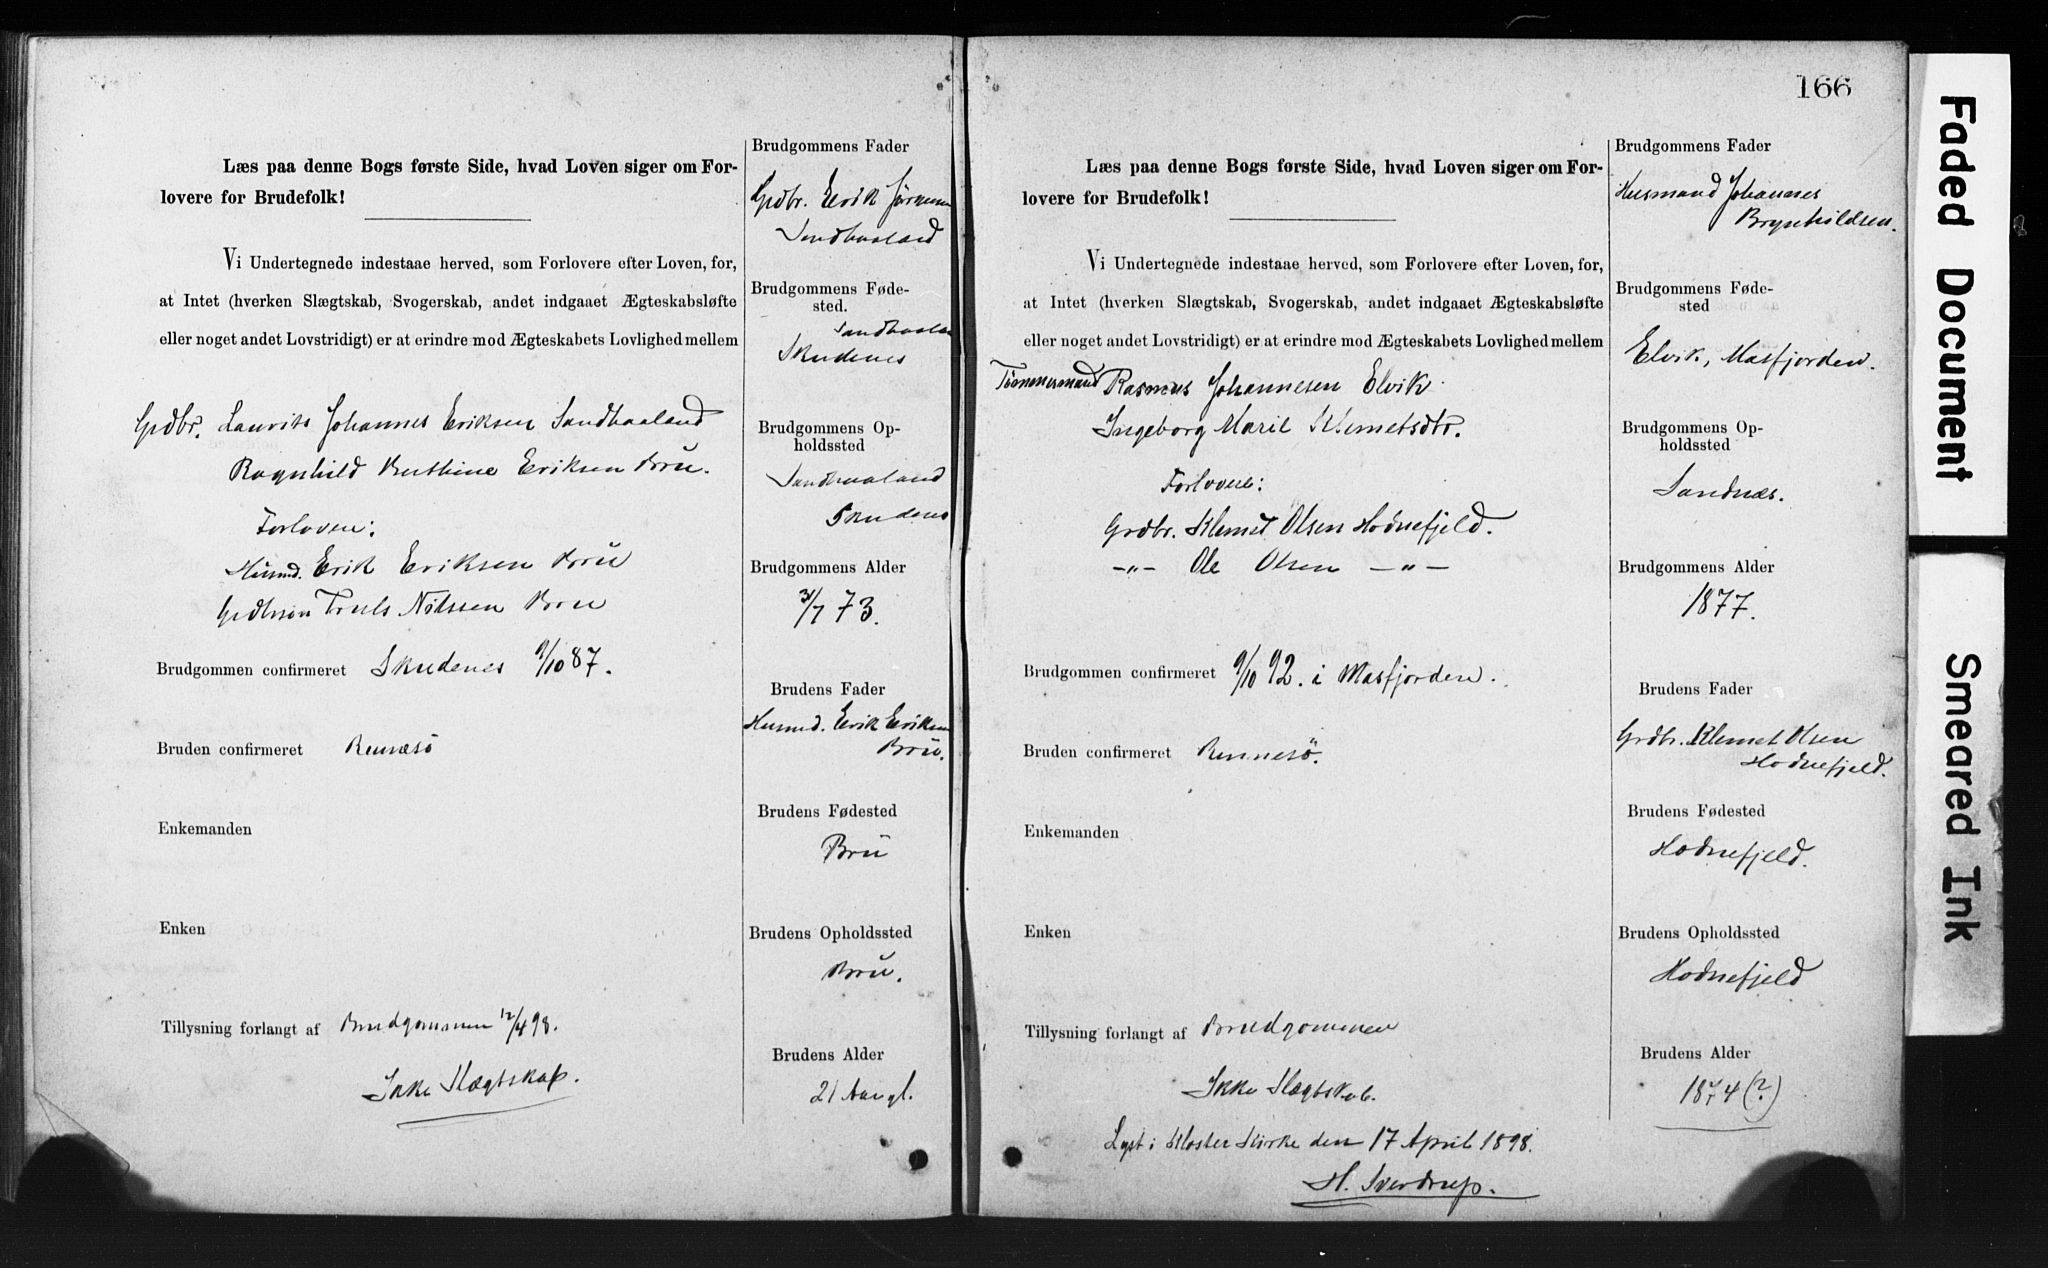 Læs paa denne Bogs første Side, hvad Loven siger om For-
lovere for Brudefolk!
Vi Undertegnede indestaae herved, som Forlovere efter Loven, for,
at Intet (hverken Slægtskab, Svogerskab, andet indgaaet Ægteskabsløfte
eller noget andet Lovstridigt) er at erindre mod Ægteskabets Lovlighed mellem
Grdbr. Laurits Johannes Eriksen Sandhaaland
Ragnhild Berthine Eriksen Bru.
Forlovere:
Husmd. Erik Eriksen Bru
Truls Nilssen Bru
Brudgommen confirmeret Skudenes 9/10 87.
Bruden confirmeret Rennesö
Enkemanden
Enken
Tillysning forlangt af Brudgommen 12/4 98.
Ikke Slægtskap.
Brudgommens Fader
Grdbr. Erik
Sandhaaland
Brudgommens Føde-
sted.
Sandhaaland
Skudenes
Brudgommens Op-
holdssted
Sandhaaland
Skudenes
Brudgommens Alder
31/7 73.
Brudens Fader
Husmd. Erik Eriksen
Bru.
Brudens Fødested
Bru
Brudens Opholdssted
Bru.
Brudens Alder
21 Aar gl.
166
Læs paa denne Bogs første Side, hvad Loven siger om For-
lovere for Brudefolk!
Vi Undertegnede indestaae herved, som Forlovere efter Loven, for,
at Intet (hverken Slægtskab, Svogerskab, andet indgaaet Ægteskabsløfte
eller noget andet Lovstridigt) er at erindre mod Ægteskabets Lovlighed mellem
Tömmermand Rasmus Johannesen Elvik.
Ingeborg Marie Klemetsdtr.
Forlovere:
Grdbr. Klemet Olsen Hodnefjeld.
—„— Ole Olsen —„—
Brudgommen confirmeret 9/10 92. i Masfjorden.
Bruden confirmeret Rennesö.
Enkemanden
Enken
Tillysning forlangt af Brudgommen
Ikke Slægtskab.
Lyst i Kloster Kirke den 17 April 1898.
H. Sverdrup.
Brudgommens Fader
Husmand Johannes
Brynhildsen.
Brudgommens Føde-
sted
Elvik, Masfjorden.
Brudgommens Op-
holdssted
Sandnæs.
Brudgommens Alder
1877.
Brudens Fader
Grdbr. Klemet Olsen
Hodnefjeld.
Brudens Fødested
Hodnefjeld.
Brudens Opholdssted
Hodnefjeld
Brudens Alder
1874 (?)
Faded Document
Smeared Ink